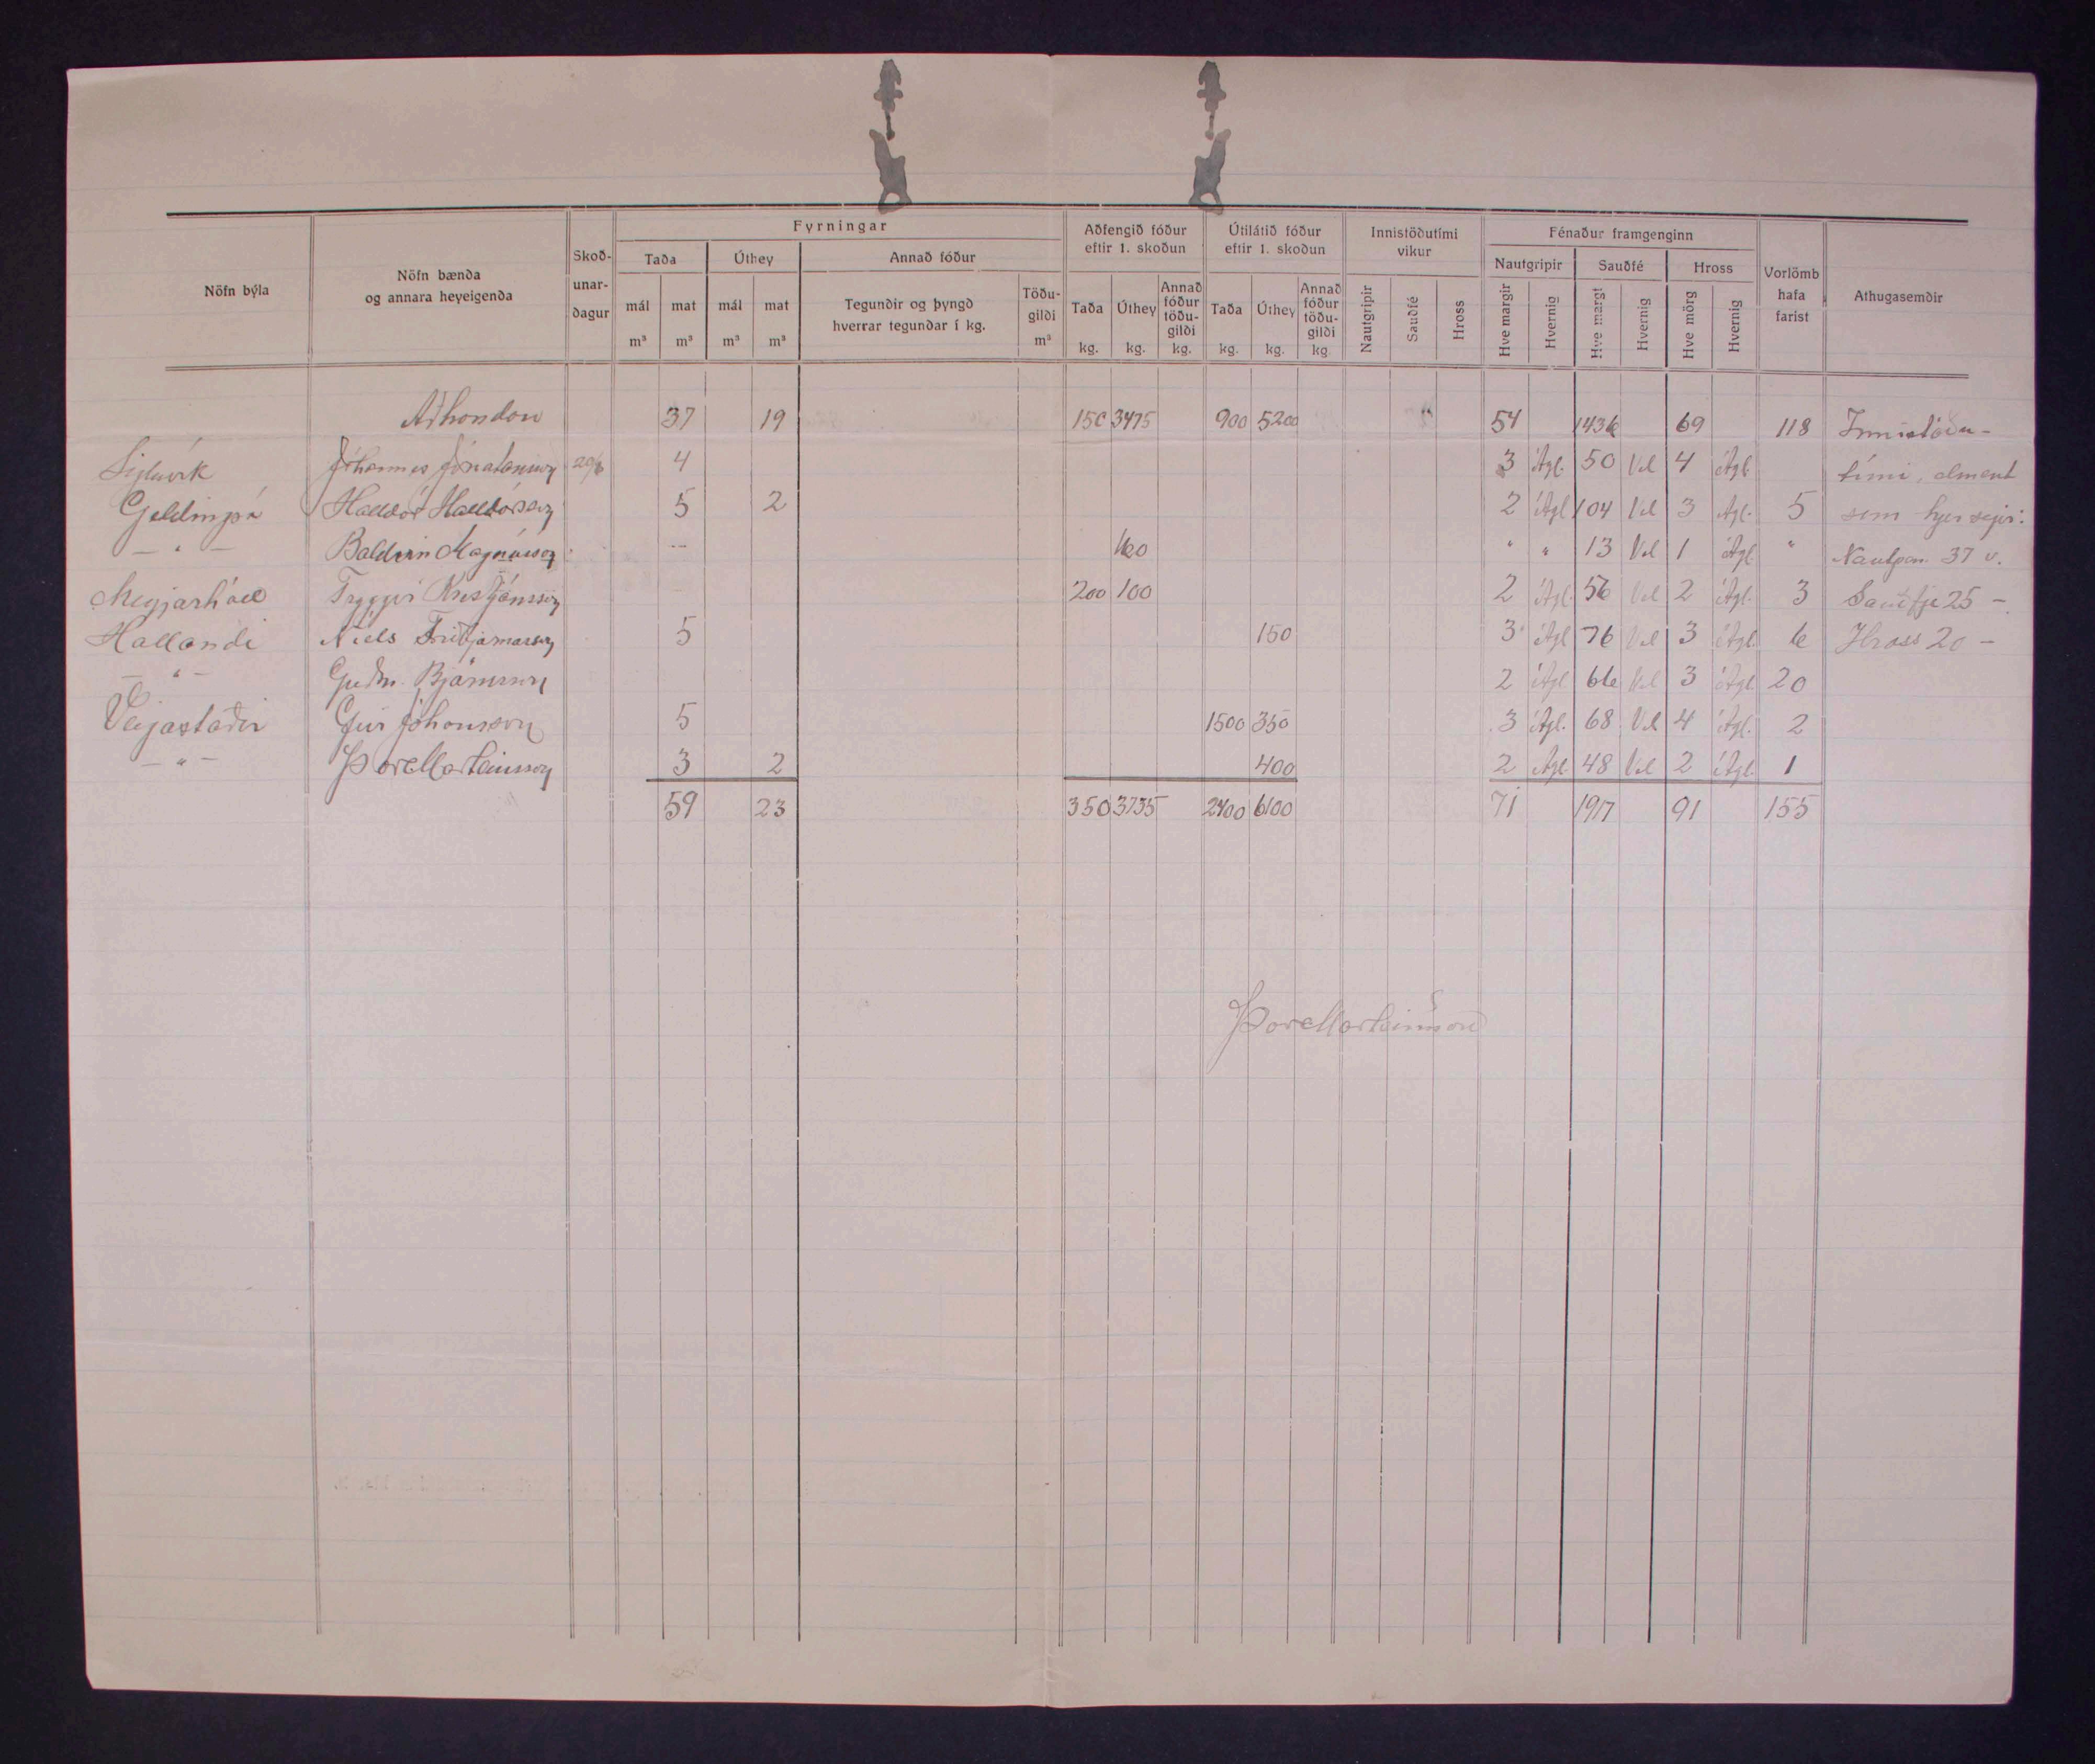 Fyrningar
Aðfengið fóður eftir 1. skoðun
Útilátið fóður eftir 1. skoðun
Innistöðutími vikur
Fénaður framgenginn
Nöfn býla
Nöfn bænda og annara heyeigenda
Skoð-unar-dagur
Taða
Úthey
Annað fóður
Nautgripir
Sauðfé
Hross
Vorlömb hafa farist
Athugasemdir
mál m³
mat m³
mál m³
mat m³
Tegundir og þyngd hverrar tegundar í kg.
Töðu-gildi m³
Taða kg.
Úthey kg.
Annað fóður töðu-gildi kg.
Taða kg.
Úthey kg.
Annað fóður töðu-gildi kg
Nautgripir
Sauðfé
Hross
Hve margir
Hvernig
Hve margt
Hvernig
Hve mörg
Hvernig
37 19 150 3475 900 5200 " 54 1436 69 118 Innistöðu-
Jóhannes Jónatansson 4 3 Ágl. 50 Vel 4 Ágl tími, alment
Geldingsá Halldór Halldórsson 5 2 2 Ágl 104 Vel 3 Ágl. 5 sem hjer segir:
— " — Baldvin Magnússon 160 " " 13 Vel 1 Ágl " Nautpen. 37 v.
Meyjarhóll Tryggvi Kristjánsson 200 100 2 Ágl. 56 Vel 2 Ágl. 3 Sauðfje 25 —
Hallandi Níels Friðbjarnarson 5 150 3 Ágl 76 Vel 3 Ágl 6 Hross 20 —
— " — Guðm. Björnsson 2 Ágl 66 Vel 3 Ágl 20
Veigastaðir Geir Jóhannsson 5 1500 350 3 Ágl. 68 Vel 4 Ágl. 2
— " — Þor Marteinsson 3 2 400 2 Ágl 48 Vel 2 Ágl. 1
59 23 350 3735 2400 6100 71 1917 91 155
Þor Marteinsson